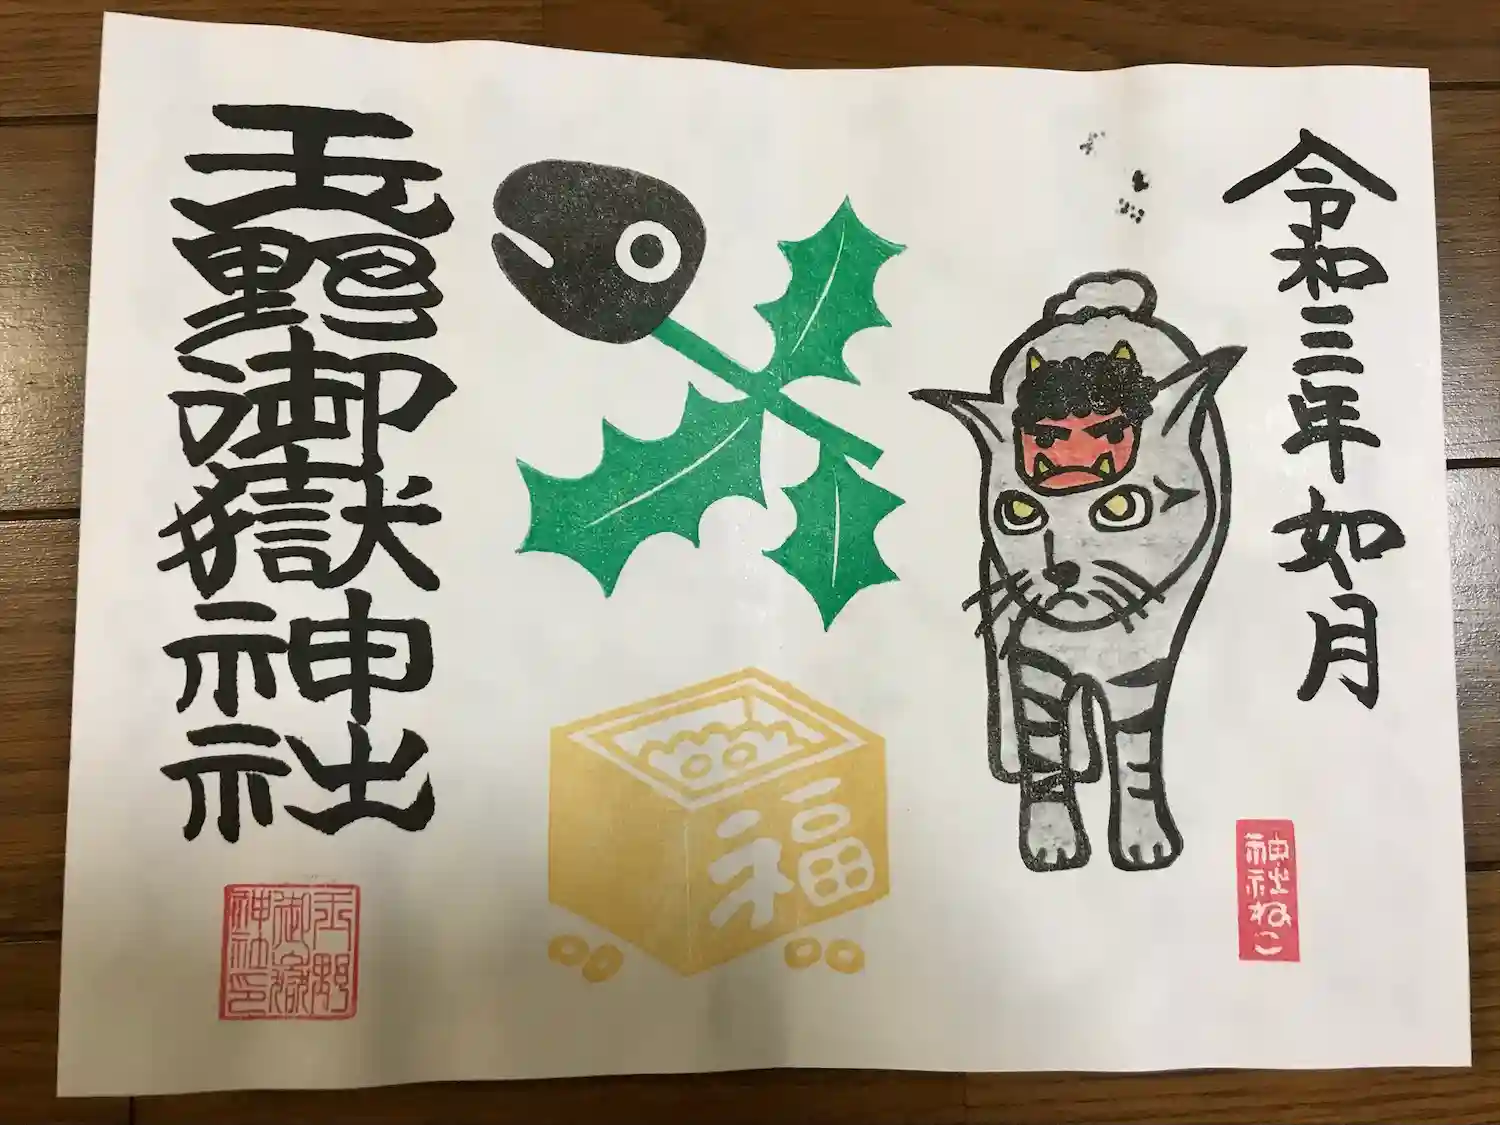 令和三年如月
神社ねこ
福
玉野御嶽神社
玉野
御嶽
神社印